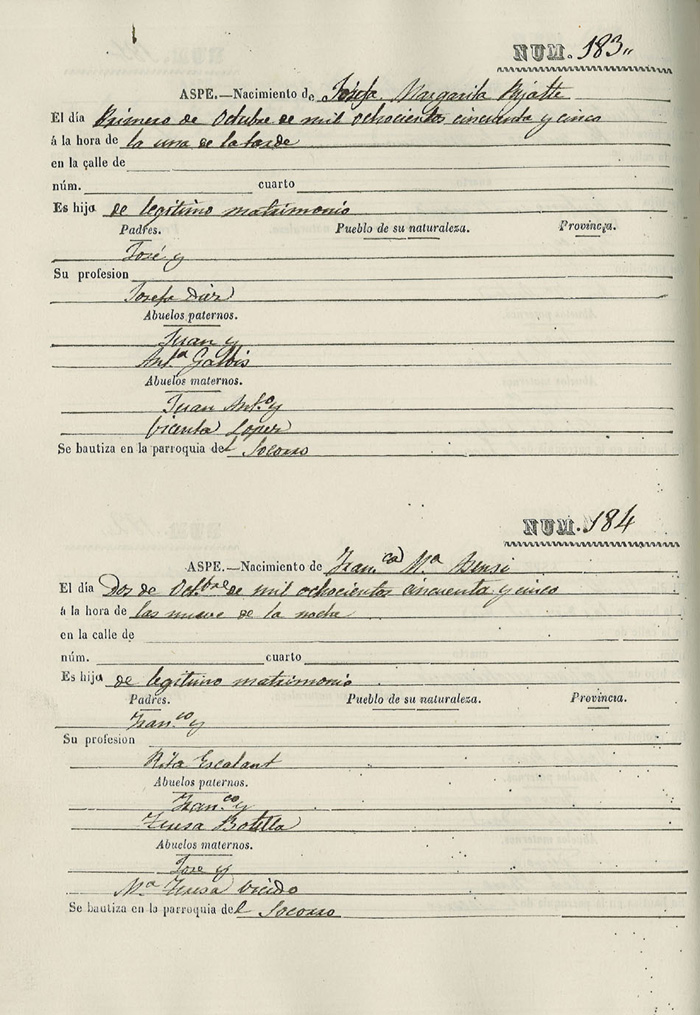 NUM. 183
ASPE.—Nacimiento de Josefa Margarita
El día Primero de Octubre de mil ochocientos cincuenta y cinco
á la hora de la una de la tarde
en la çalle de
núm. cuarto
Es hija de legitimo matrimonio
Padres. Pueblo de su naturaleza. Provincia.
José y
Su profesion
Josefa Diez
Abuelos paternos.
Juan y
Ant.ª Galvis
Abuelos maternos.
Juan Ant.º y
Vicenta Lopez
Se bautiza en la parroquia del Socorro
NUM. 184
ASPE.—Nacimiento de Fran.ca M.ª
El día Dos de Oct.bre de mil ochocientos cincuenta y cinco
á la hora de las nueve de la noche
en la calle de
núm. cuarto
Es hija de legitimo matrimonio
Padres. Pueblo de su naturaleza. Provincia.
Fran.co y
Su profesion
Rita Escalant
Abuelos paternos.
Fran.co y
Teresa Botella
Abuelos maternos.
Jose y
M.ª Teresa
Se bautiza en la parroquia del Socorro